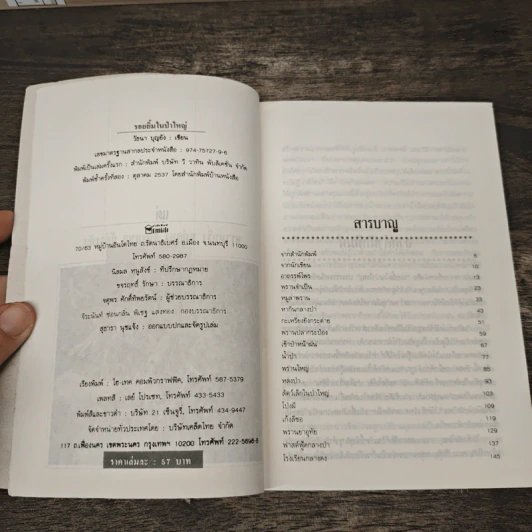 รอยยิ้มในป่าใหญ่
วัธนา บุญยัง : เขียน
เลขมาตรฐานสากลประจำหนังสือ : 974-75727-9-6
พิมพ์เป็นเล่มครั้งแรก : สำนักพิมพ์ บริษัท วี วาทิน พับลิเคชั่น จำกัด
พิมพ์ซ้ำครั้งที่สอง : ตุลาคม 2537 โดยสำนักพิมพ์บ้านหนังสือ
70/63 หมู่บ้านอินโดไทย ถ.รัตนาธิเบศร์ อ.เมือง จ.นนทบุรี 11000
โทรศัพท์ 580-2987
นิสมล หนูสังข์ : ที่ปรึกษากฎหมาย
ขจรฤทธิ์ รักษา : บรรณาธิการ
จตุพร ศักดิ์ทิพย์รัตน์ : ผู้ช่วยบรรณาธิการ
จีระนันท์ ช่อนกลิ่น แสงทอง : กองบรรณาธิการ
สุธารา นุชแจ้ง : ออกแบบปกและจัดรูปเล่ม
เรียงพิมพ์ : ไฮ-เทค คอมพิวกราฟฟิค, โทรศัพท์ 587-5379
เพลทสี : เลย์ โปรเซท, โทรศัพท์ 433-5433
พิมพ์สีและขาวดำ : บริษัท 21 เซ็นจูรี่, โทรศัพท์ 434-9447
จัดจำหน่ายทั่วประเทศโดย : บริษัทเคล็ดไทย จำกัด
117 ถ.เฟื่องนคร เขตพระนคร กรุงเทพฯ 10200 โทรศัพท์ 222-5698-8
ราคาเล่มละ : 67 บาท
สารบาญ
จากสำนักพิมพ์ 6
จากนักเขียน 10
อาถรรพ์ไพร 13
พรานจำเป็น 21
หมูล่าพราน 29
ทากินกลางป่า 43
กะเหรี่ยงยิงกระดาย 51
พรานปลากระป๋อง 59
เข้าป่าหน้าฝน 69
น้ำป่า 77
พรานใหญ่ 85
หลงป่า 93
สัตว์เล็กในป่าใหญ่ 103
โป่งผี 109
เก้งลี่ซอ 119
พรานยาอุทัย 129
ฟาสต์ฟู้ดกลางป่า 137
โรงเรียนกลางดง 145